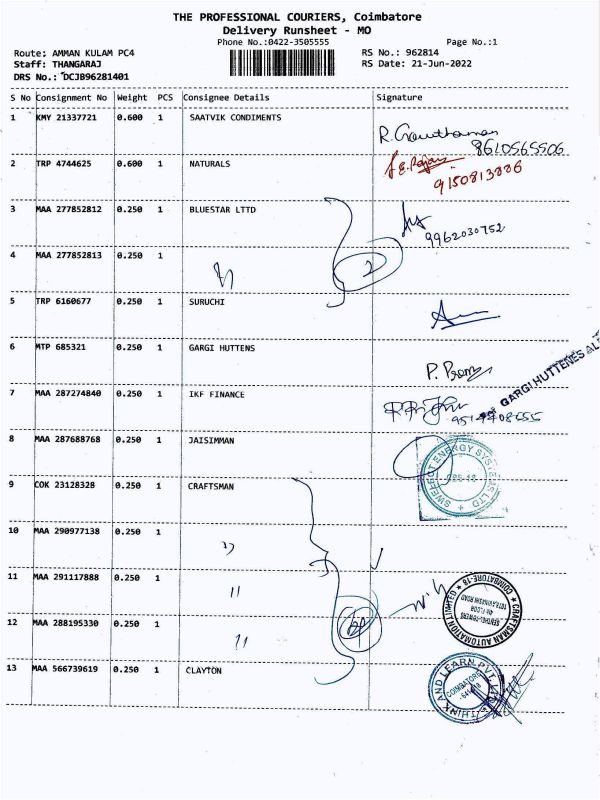 THE PROFESSIONAL COURIERS, Coimbatore
Delivery Runsheet - MO
Phone No.:0422-3505555
Page No.:1
Route: AMMAN KULAM PC4
RS No.: 962814
Staff: THANGARAJ
RS Date: 21-Jun-2022
DRS No.: DCJB96281401
S No Consignment No Weight PCS Consignee Details Signature
1 KMY 21337721 0.600 1 SAATVIK CONDIMENTS
R. Gowthaman
8610565506
2 TRP 4744625 0.600 1 NATURALS
9150813886
3 MAA 277852812 0.250 1 BLUESTAR LTTD
9962030752
4 MAA 277852813 0.250 1
2
5 TRP 6160677 0.250 1 SURUCHI
6 MTP 685321 0.250 1 GARGI HUTTENS
GARGI HUTTENES
7 MAA 287274840 0.250 1 IKF FINANCE
8 MAA 287688768 0.250 1 JAISIMMAN
SWELECT ENERGY SYSTEMS LTD
9 COK 23128328 0.250 1 CRAFTSMAN
10 MAA 290977138 0.250 1 "
11 MAA 291117888 0.250 1 "
CRAFTSMAN AUTOMATION LIMITED
COIMBATORE-18
12 MAA 288195330 0.250 1 "
13 MAA 566739619 0.250 1 CLAYTON
THINK AND LEARN PVT.
COIMBATORE